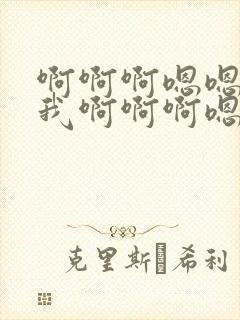 啊啊啊嗯嗯
我啊啊啊嗯
克里斯·希利